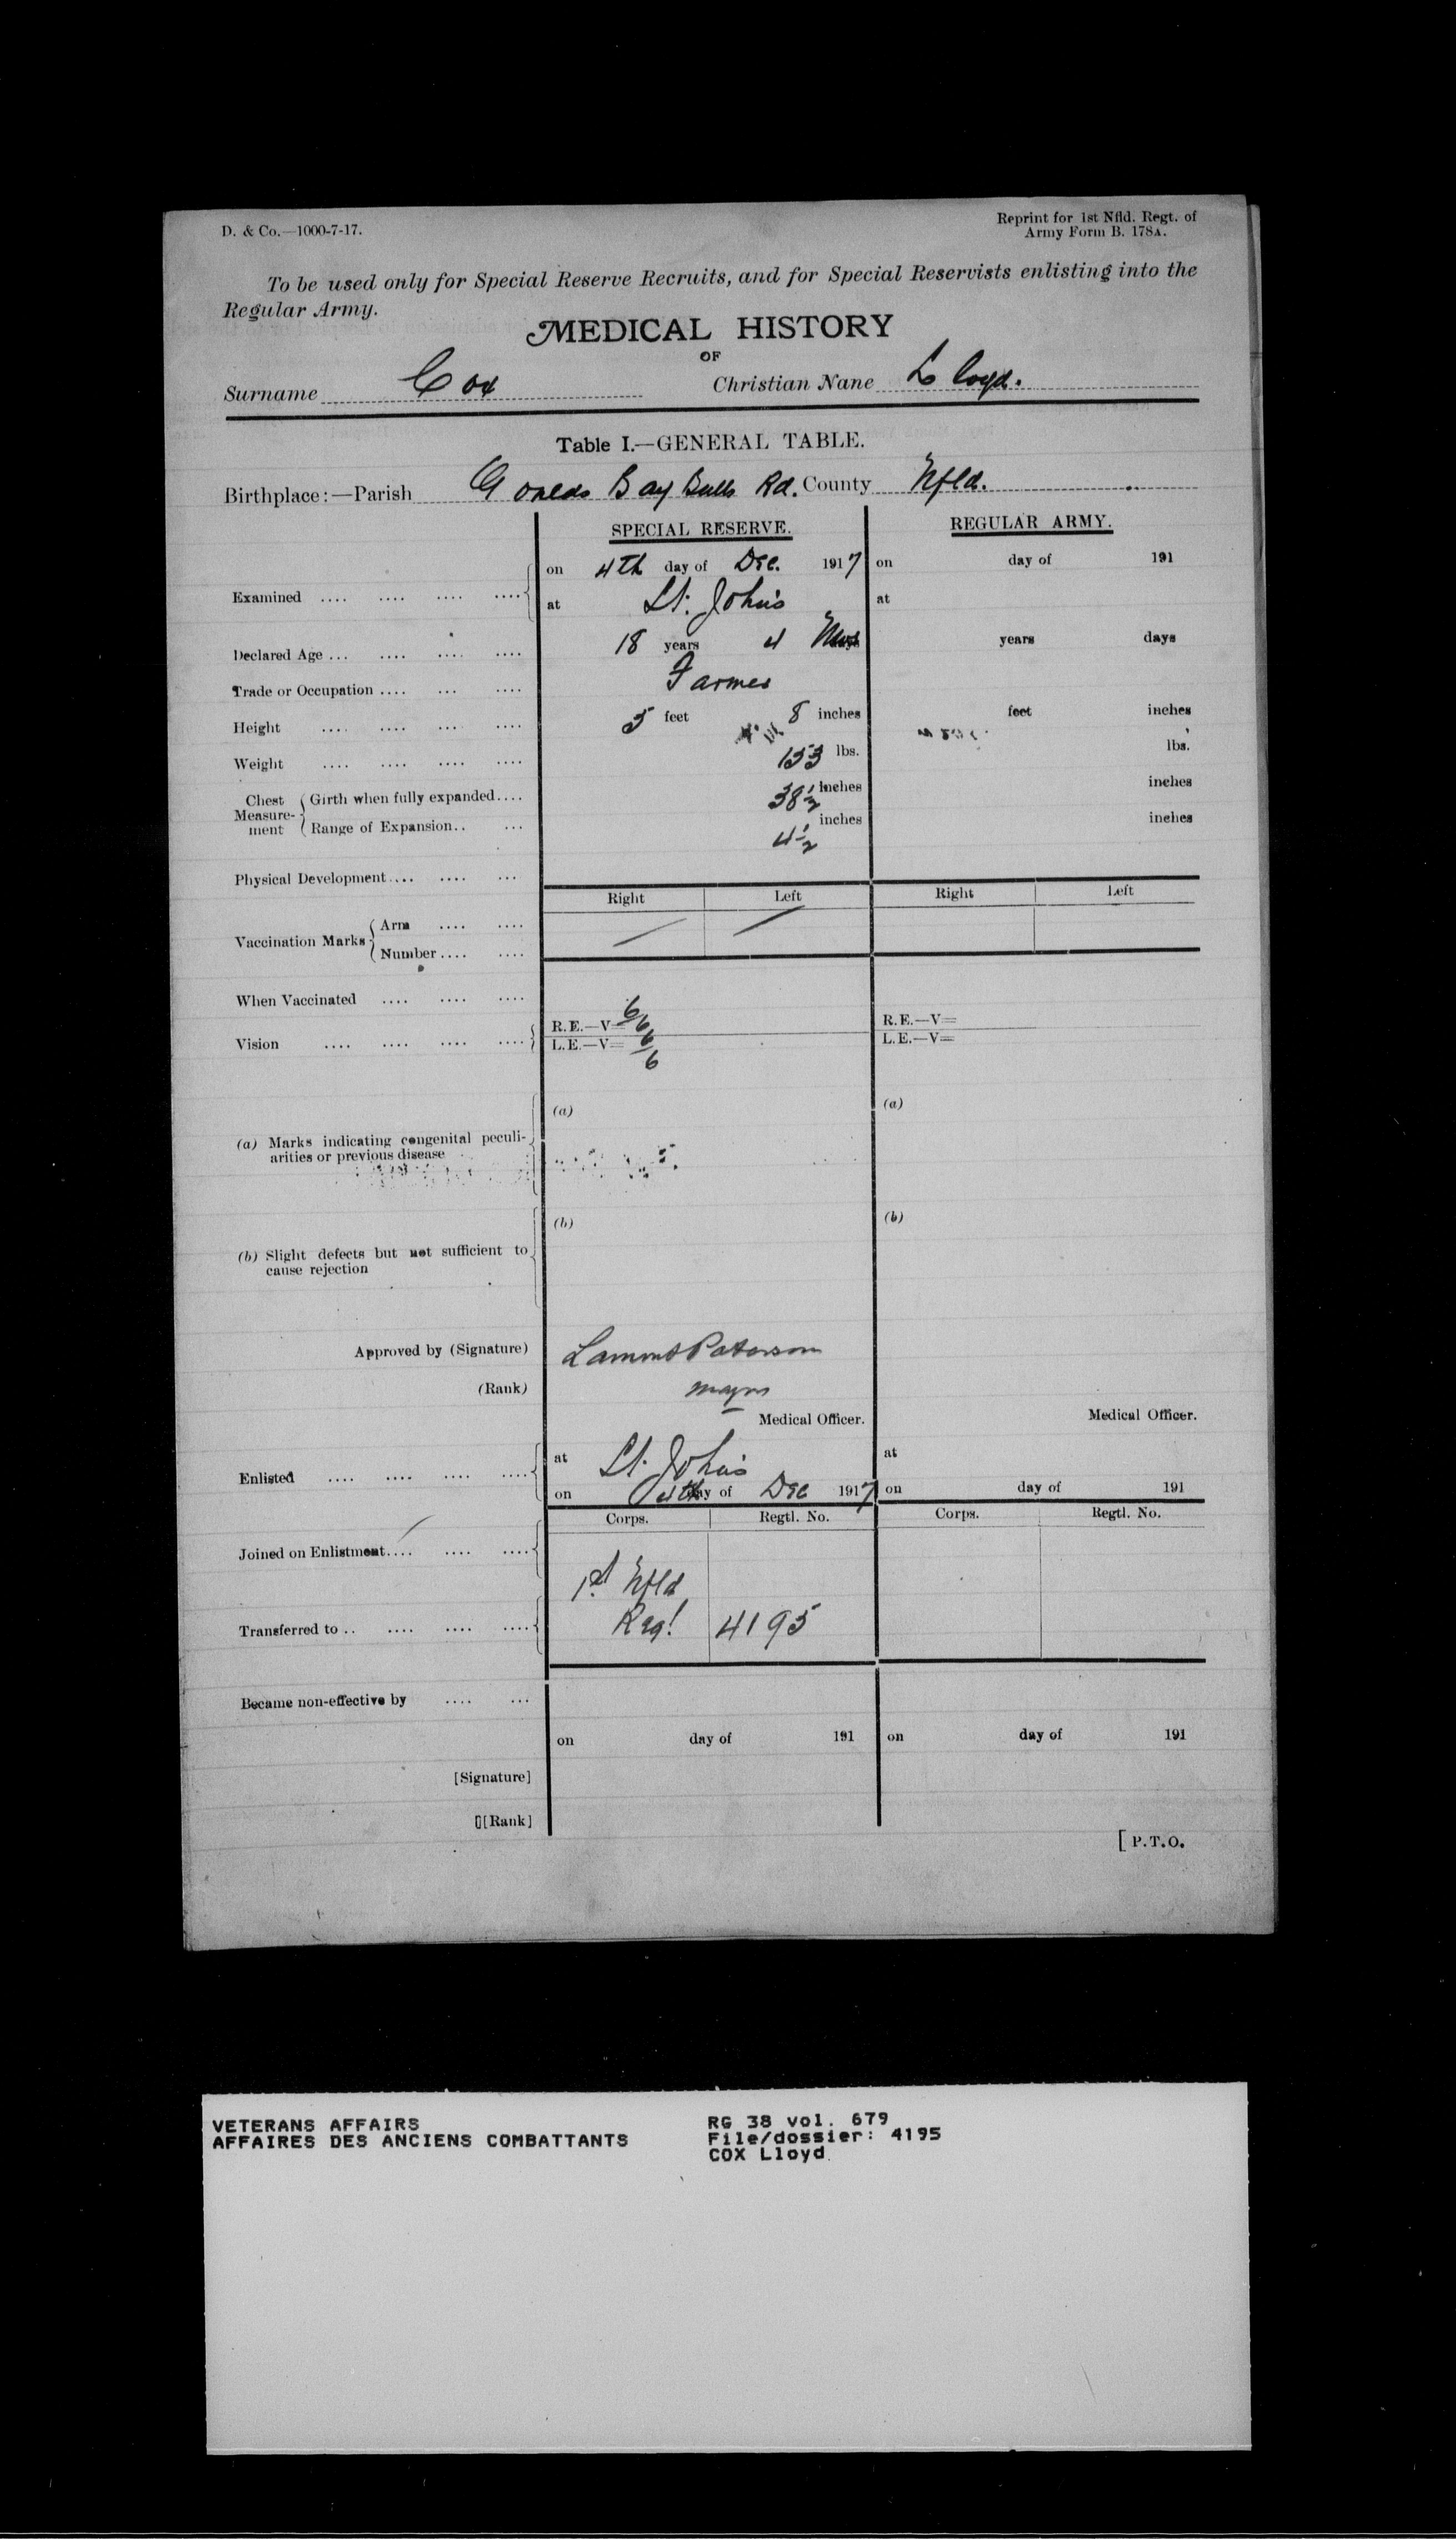 D. & Co.—1000-7-17.
Reprint for 1st Nfld. Regt. of
Army Form B. 178A.
To be used only for Special Reserve Recruits, and for Special Reservists enlisting into the
Regular Army.
MEDICAL HISTORY
OF
Surname Cox Christian Nane Lloyd.
Table I.—GENERAL TABLE.
Birthplace:—Parish Goulds Bay Bulls Rd. County Nfld.
SPECIAL RESERVE. REGULAR ARMY.
on 4th day of Dec. 1917 on day of 191
Examined .... .... .... ....
at St. John's at
Declared Age ... .... .... .... 18 years 4 Mos years days
Trade or Occupation .... ... .... Farmer
Height .... .... .... .... 5 feet 8 inches feet inches
Weight .... .... .... .... 153 lbs. lbs.
Chest Measurement Girth when fully expanded.... 38½ inches inches
Range of Expansion.. ... 4½ inches inches
Physical Development.... .... ...
Right Left Right Left
Vaccination Marks Arm .... ....
Number .... ....
When Vaccinated .... .... ....
Vision .... .... .... ....
R.E.—V= 6/6 R.E.—V=
L.E.—V= 6/6 L.E.—V=
(a) (a)
(a) Marks indicating congenital peculi-
arities or previous disease
(b) (b)
(b) Slight defects but not sufficient to
cause rejection
Approved by (Signature) Lamont Paterson
(Rank) Major
Medical Officer. Medical Officer.
at St. John's at
Enlisted .... .... .... ....
on 4th day of Dec 1917 on day of 191
Corps. Regtl. No. Corps. Regtl. No.
Joined on Enlistment.... .... ....
1st Nfld
Transferred to .. .... .... .... Regt 4195
Became non-effective by .... ...
on day of 191 on day of 191
[Signature]
[Rank]
[P.T.O.
VETERANS AFFAIRS
AFFAIRES DES ANCIENS COMBATTANTS
RG 38 vol. 679
File/dossier: 4195
COX Lloyd